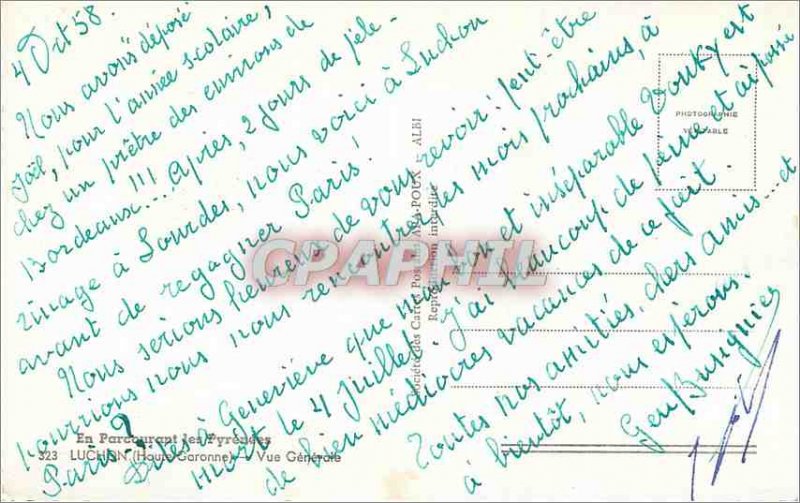 4 Oct 58.
Nous avons déposé
Joël, pour l'année scolaire,
chez un prêtre des environs de
Bordeaux... !!! Après, 2 jours de péle-
rinage à Lourdes, nous voici à Luchon
avant de regagner Paris !
Nous serions heureux de vous revoir : peut-être
pourrions nous nous rencontrer les mois prochains, à
Paris ?
Dites à Geneviève que mon bon et inséparable Vouky est
mort le 4 Juillet. J'ai beaucoup de peine et ai passé
de bien médiocres vacances de ce fait.
Toutes nos amitiés, chers amis... et
à bientôt, nous espérons.
Gen Busignier
PHOTOGRAPHIE
VÉRITABLE
Société des Cartes Postales APA-POUX - ALBI
Reproduction interdite
En Parcourant les Pyrénées
323 LUCHON (Haute-Garonne) - Vue Générale
CPAPHIL